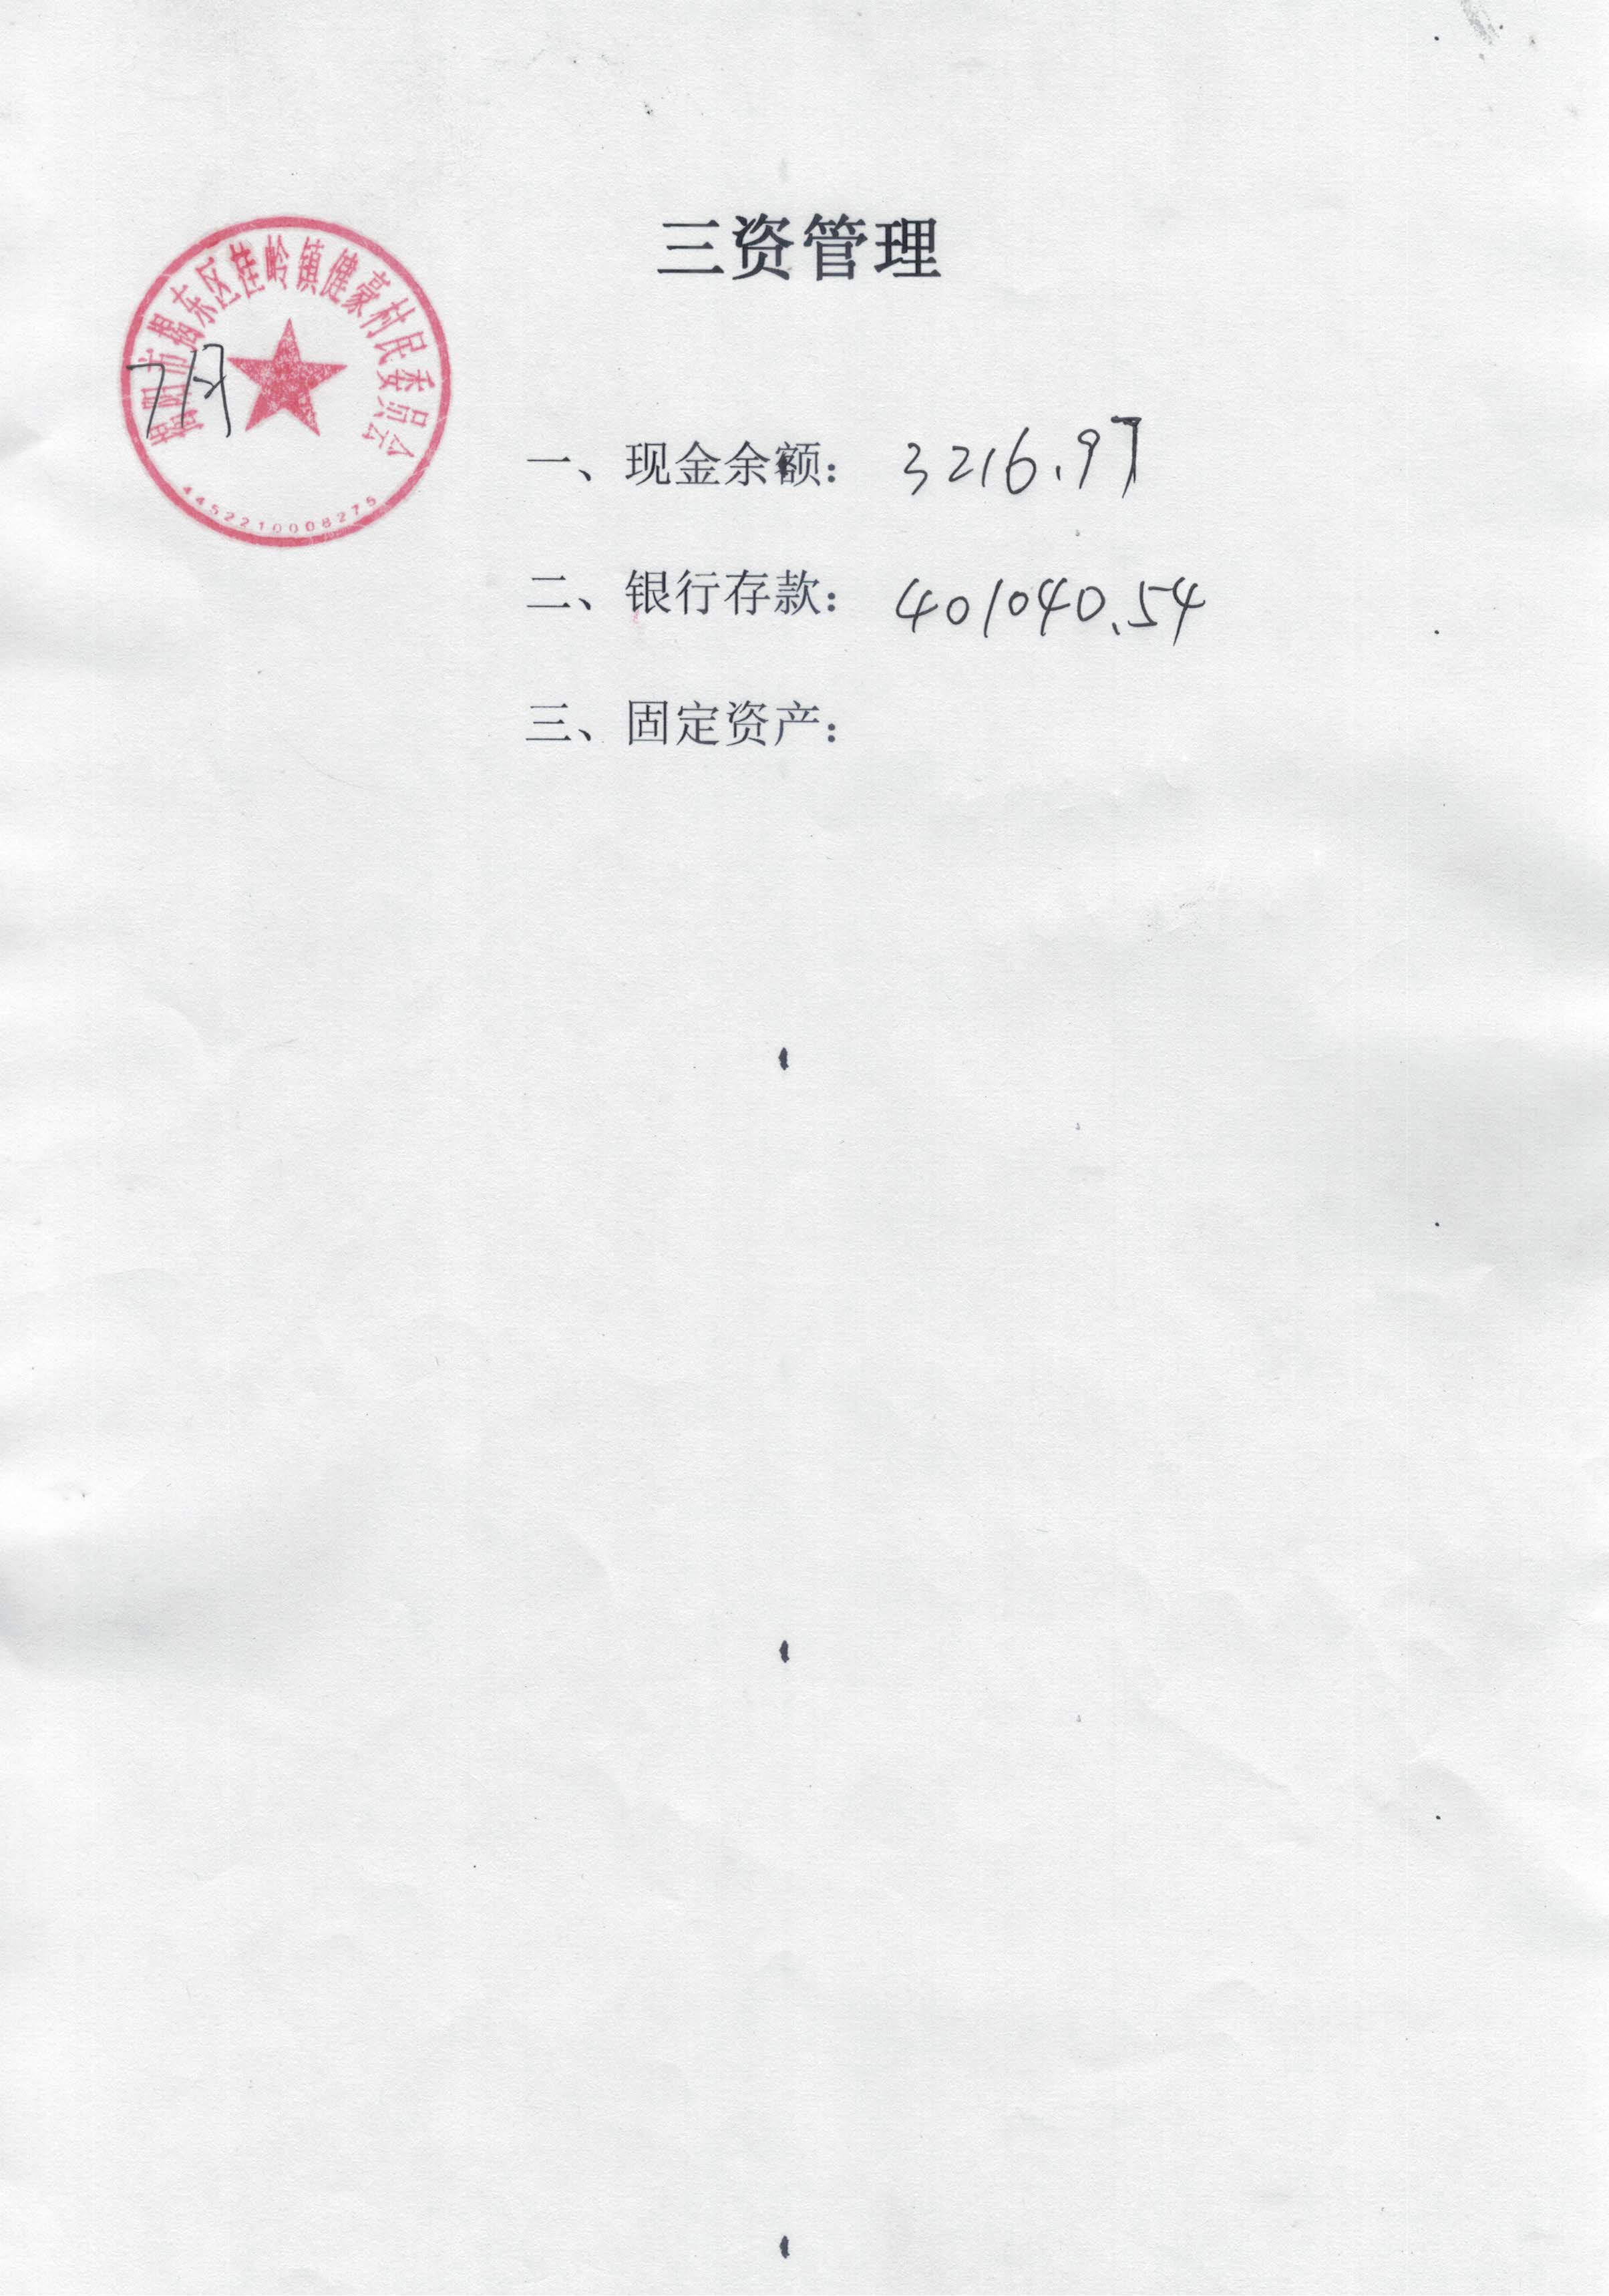 三资管理
揭阳市揭东区桂岭镇健豪村民委员会
4452210008275
7月
一、现金余额： 3216.97
二、银行存款： 401040.54
三、固定资产：